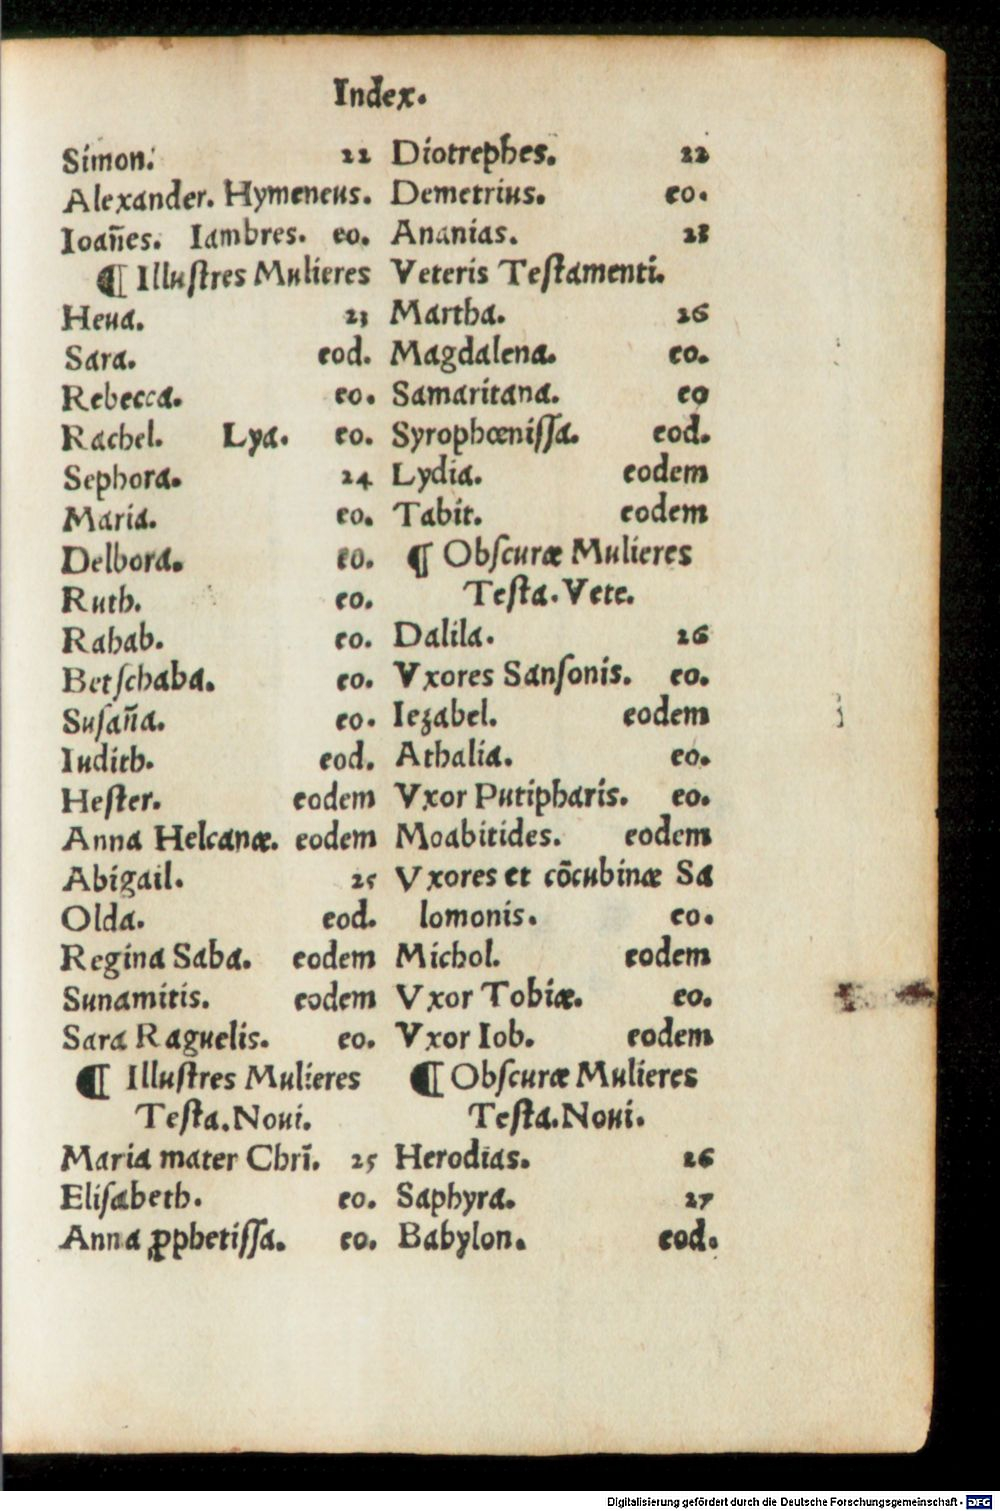 Index.
Simon. 22
Alexander. Hymeneus.
Ioañes. Iambres. eo.
Diotrephes. 22
Demetrius. eo.
Ananias. 28
¶ Illustres Mulieres Veteris Testamenti.
Heua. 23
Sara. eod.
Rebecca. eo.
Rachel. Lya. eo.
Sephora. 24
Maria. eo.
Delbora. eo.
Ruth. eo.
Rahab. eo.
Betschaba. eo.
Susaña. eo.
Iudith. eod.
Hester. eodem
Anna Helcanæ. eodem
Abigail. 25
Olda. eod.
Regina Saba. eodem
Sunamitis. eodem
Sara Raguelis. eo.
¶ Illustres Mulieres
Testa. Noui.
Maria mater Chrī. 25
Elisabeth. eo.
Anna ꝓphetissa. eo.
Martha. 26
Magdalena. eo.
Samaritana. eo
Syrophœnissa. eod.
Lydia. eodem
Tabit. eodem
¶ Obscuræ Mulieres
Testa. Vete.
Dalila. 26
Vxores Sansonis. eo.
Iezabel. eodem
Athalia. eo.
Vxor Putipharis. eo.
Moabitides. eodem
Vxores et cōcubinæ Sa
lomonis. eo.
Michol. eodem
Vxor Tobiæ. eo.
Vxor Iob. eodem
¶ Obscuræ Mulieres
Testa. Noui.
Herodias. 26
Saphyra. 27
Babylon. eod.
Digitalisierung gefördert durch die Deutsche Forschungsgemeinschaft - DFG